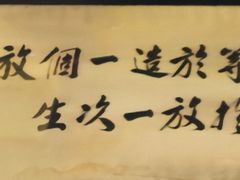 於造一個放
放一次生